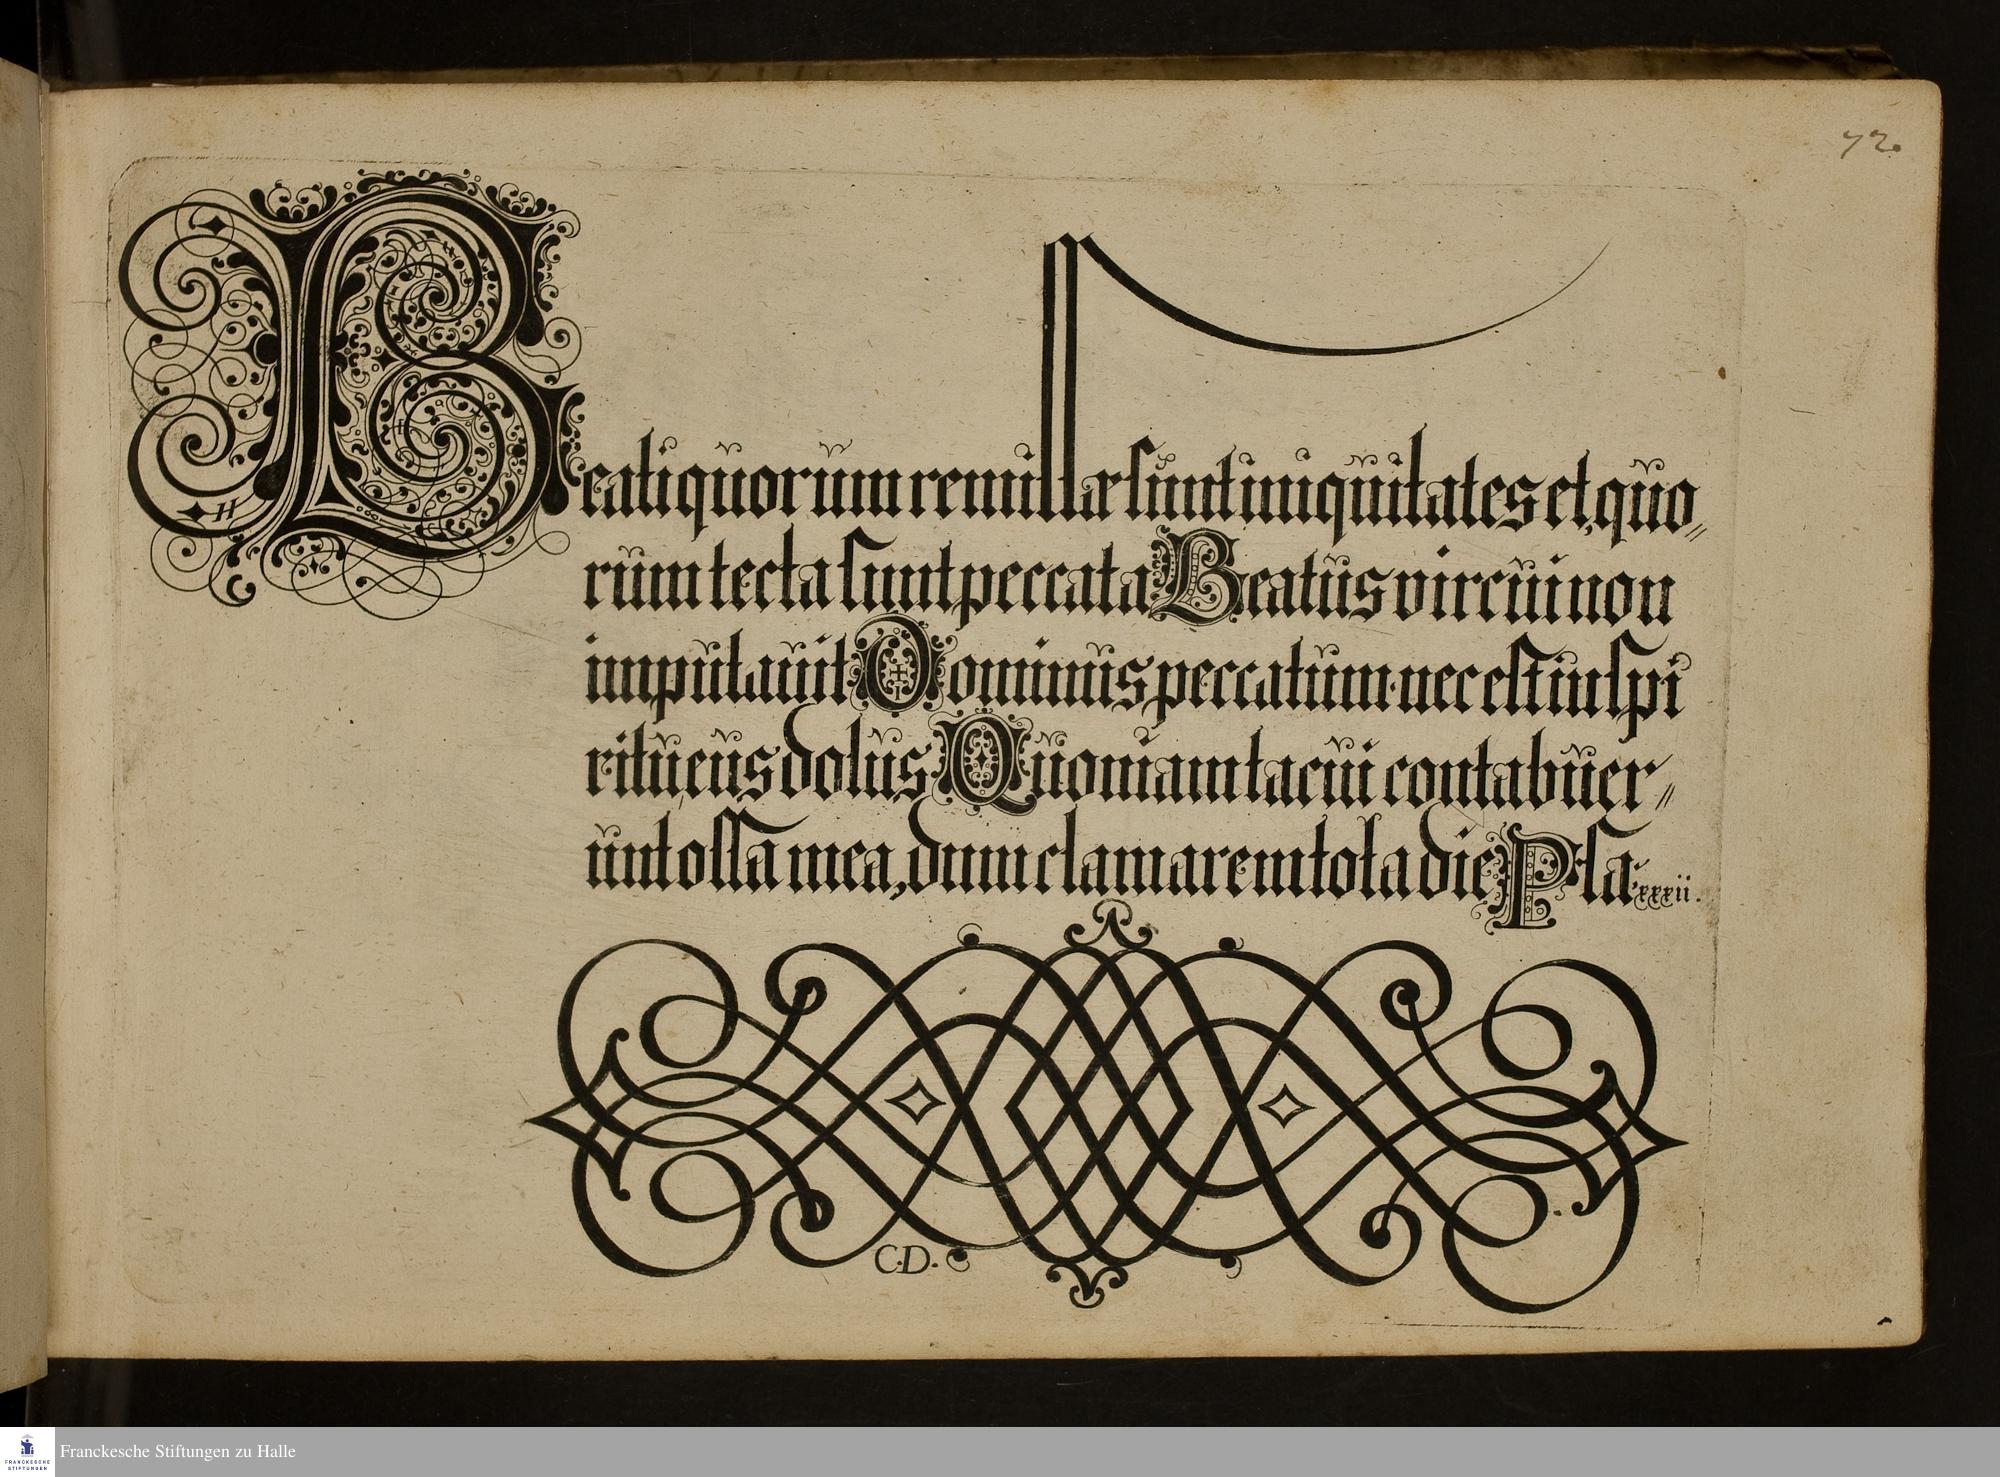 72.
Beati quorum remissæ sunt iniquitates et, quo⸗
rum tecta sunt peccata Beatus vir cui non
imputauit Dominus peccatum. nec est in spi
ritu eius dolus Quoniam tacui contabuer⸗
unt ossa mea, dum clamarem tota die Psa. xxxii.
H
C.D.
Franckesche Stiftungen zu Halle
FRANCKESCHE
STIFTUNGEN